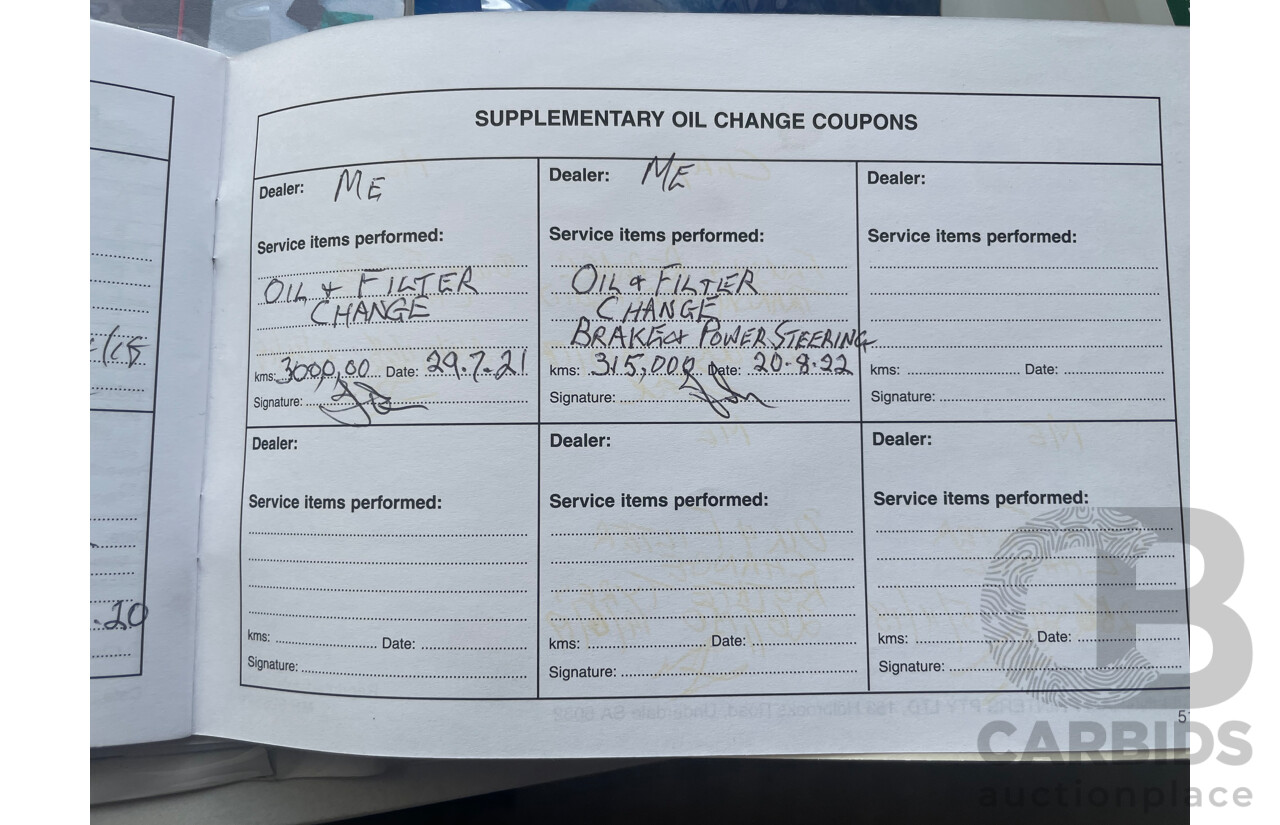 SUPPLEMENTARY OIL CHANGE COUPONS
Dealer: ME
Service items performed:
OIL & FILTER
CHANGE
kms: 3000,00 Date: 29.7.21
Signature:
Dealer: ME
Service items performed:
OIL & FILTER
CHANGE
BRAKE & POWER STEERING
kms: 315,000 Date: 20.8.22
Signature:
Dealer:
Service items performed:
kms: Date:
Signature:
Dealer:
Service items performed:
kms: Date:
Signature:
Dealer:
Service items performed:
kms: Date:
Signature:
Dealer:
Service items performed:
kms: Date:
Signature:
.20
CARBIDS
auctionplace